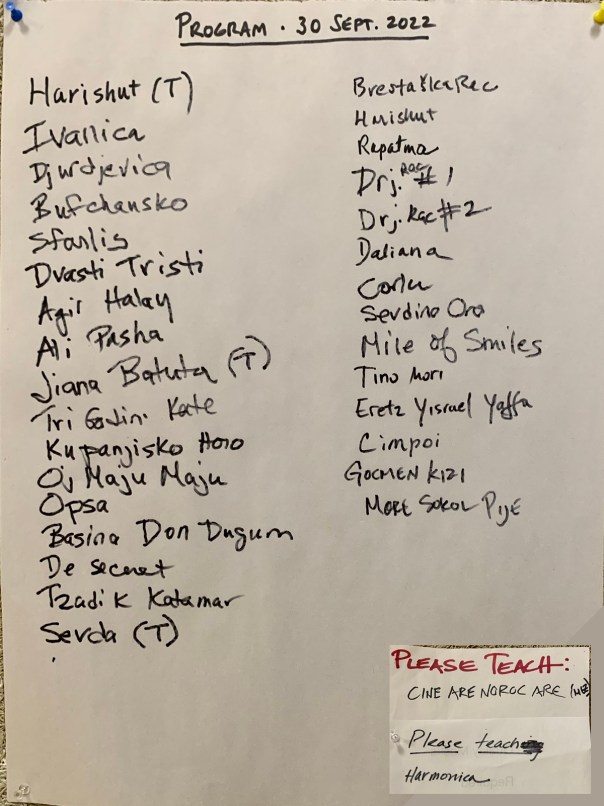 PROGRAM · 30 SEPT. 2022
Harishut (T)
Ivanica
Djurdjevica
Bufchansko
Sfarlis
Dvasti Tristi
Agir Halay
Ali Pasha
Jiana Batuta (T)
Tri Godin. Kate
Kupanjisko Horo
Oj Maju Maju
Opsa
Basina Don Dugum
De secerat
Tzadik Katamar
Sevda (T)
Brestaška Rac
Hrishut
Rapatma
Drj. Rac #1
Drj. Rac #2
Daliana
Corlu
Sevdino Oro
Mile of Smiles
Tino Mori
Eretz Yisrael Yaffa
Cimpoi
GOCMEN KIZI
MORE SOKOL PIJE
PLEASE TEACH:
CINE ARE NOROC ARE
Please teach
Harmonica